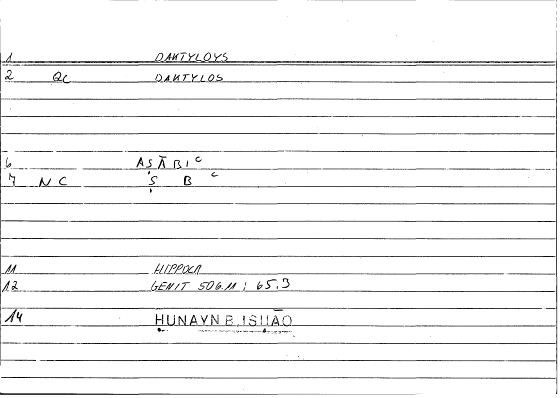 1 DAKTYLOYS
2 QC DAKTYLOS
6 AṢĀBIᶜ
7 NC Ṣ B ᶜ
11 HIPPOCR
12 GENIT 506.11; 65.3
14 ḤUNAYN B. ISḤĀQ